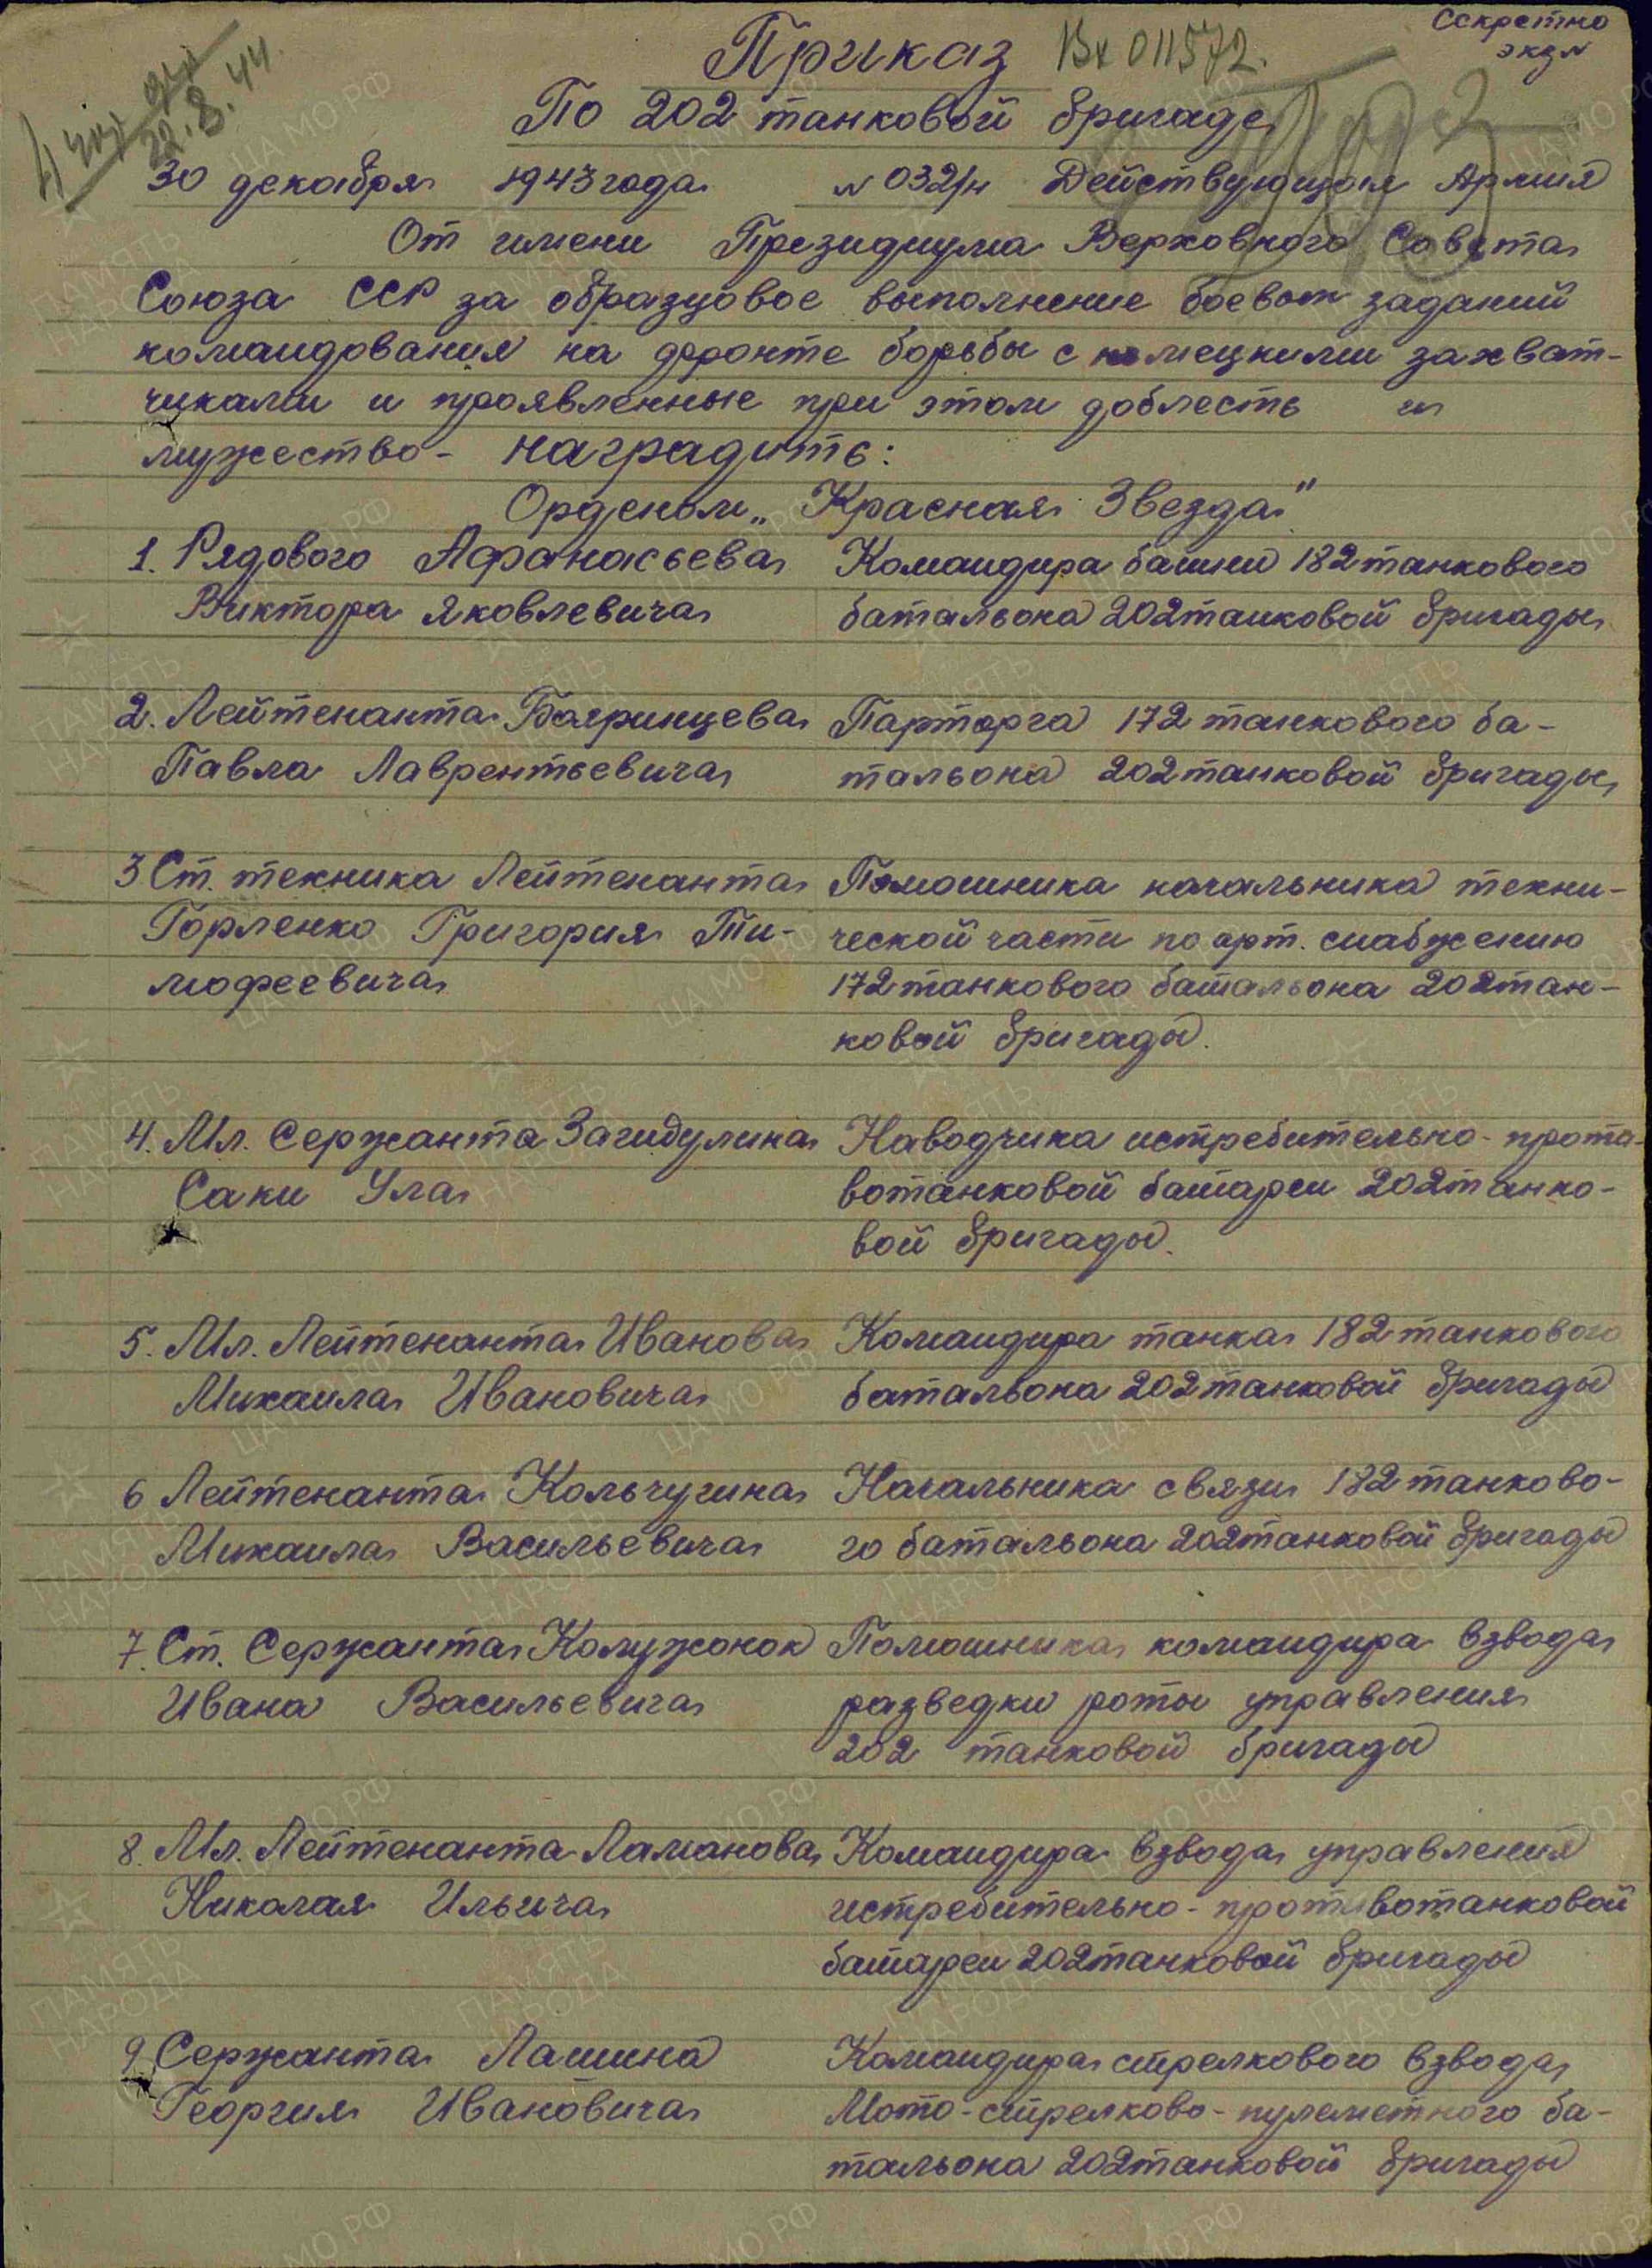 Секретно
экз №
Приказ Вх 011572.
22.8.44.
По 202 танковой бригаде
30 декабря 1943 года № 032/н Действующая Армия
От имени Президиума Верховного Совета
Союза ССР за образцовое выполнение боевых заданий
командования на фронте борьбы с немецкими захват-
чиками и проявленные при этом доблесть и
мужество - наградить:
Орденом „Красная Звезда"
1. Рядового Афанасьева Командира башни 182 танкового
Виктора Яковлевича батальона 202 танковой бригады
2. Лейтенанта Бояринцева Парторга 172 танкового ба-
Павла Лаврентьевича тальона 202 танковой бригады
3 Ст. техника Лейтенанта Помошника начальника техни-
Горленко Григория Ти- ческой части по арт. снабжению
мофеевича 172 танкового батальона 202 тан-
ковой бригады.
4. Мл. Сержанта Загидулина Наводчика истребительно-проти-
Саки Ула вотанковой батареи 202 танко-
вой бригады.
5. Мл. Лейтенанта Иванова Командира танка 182 танкового
Михаила Ивановича батальона 202 танковой бригады
6 Лейтенанта Кольчугина Начальника связи 182 танково-
Михаила Васильевича го батальона 202 танковой бригады
7. Ст. Сержанта Колужонок Помошника командира взвода
Ивана Васильевича разведки роты управления
202 танковой бригады
8. Мл. Лейтенанта Ламанова Командира взвода управления
Николая Ильича истребительно-противотанковой
батареи 202 танковой бригады
9 Сержанта Лашина Командира стрелкового взвода
Георгия Ивановича Мото-стрелково-пулеметного ба-
тальона 202 танковой бригады